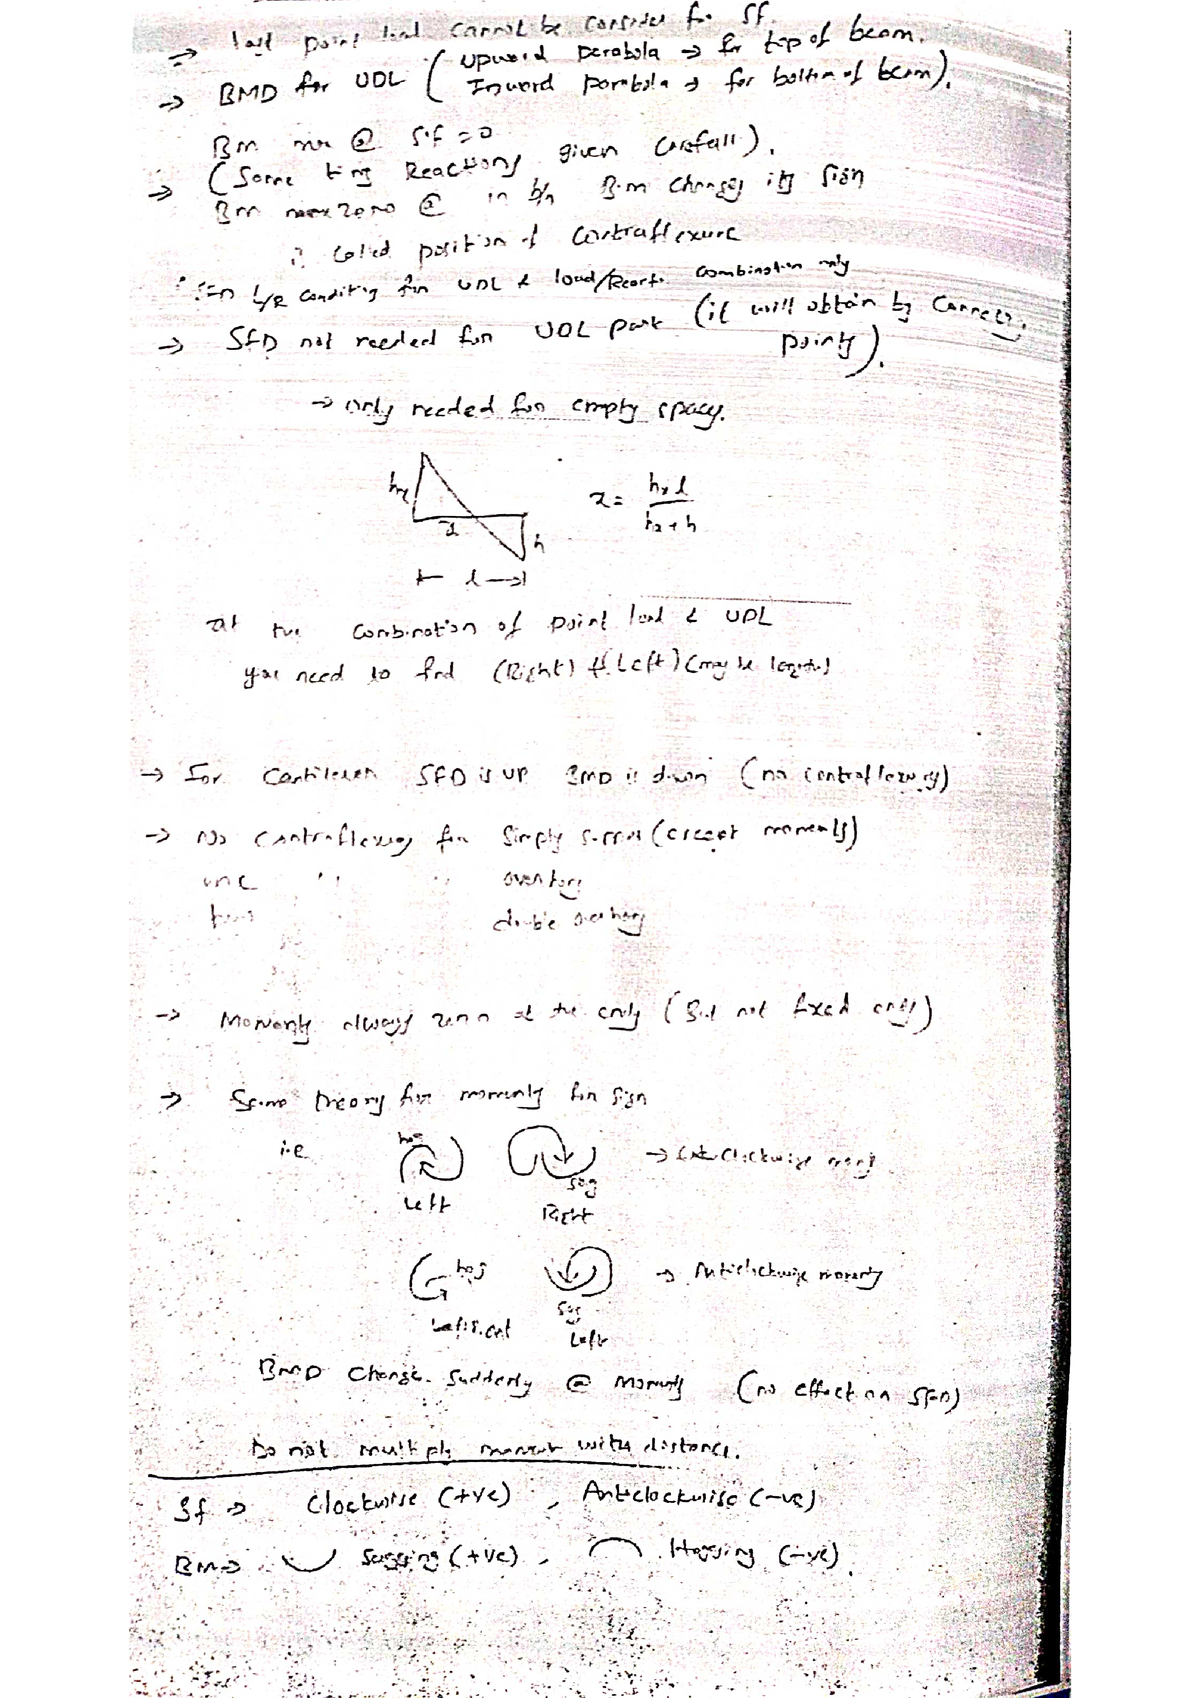 → last point load cannot be consider for SF.
→ BMD for UDL ( upward parabola → for top of beam.
Inward parabola → for bottom of beam).
Bm @ S.F = 0
→ (Some time Reactions given carefull).
Bm zero @ in b/n B.m changes its sign
is called position of contraflexure
L/R condition for UDL & load/React. combination only
→ SFD not needed for UDL part (it will obtain by connecting points).
→ only needed for empty space.
hx
x
h
l
x = hx l / hx + h
at the combination of point load & UDL
you need to find (Right) (Left) (may be
→ For cantilever SFD is UP BMD is down (no contraflexure)
→ No contraflexure for simply support (except moments)
one " " overhang
two double overhang
→ Moments always zero at the ends (But not fixed ends)
→ Same theory for moments for sign
i.e hog sag → clockwise moment
Left Right
hog sag → Anticlockwise moments
Left
BMD change suddenly @ moments (no effect on SFD)
Do not multiply moment with distance.
Sf → Clockwise (+ve), Anticlockwise (-ve)
BM → Sagging (+ve), Hogging (-ve).